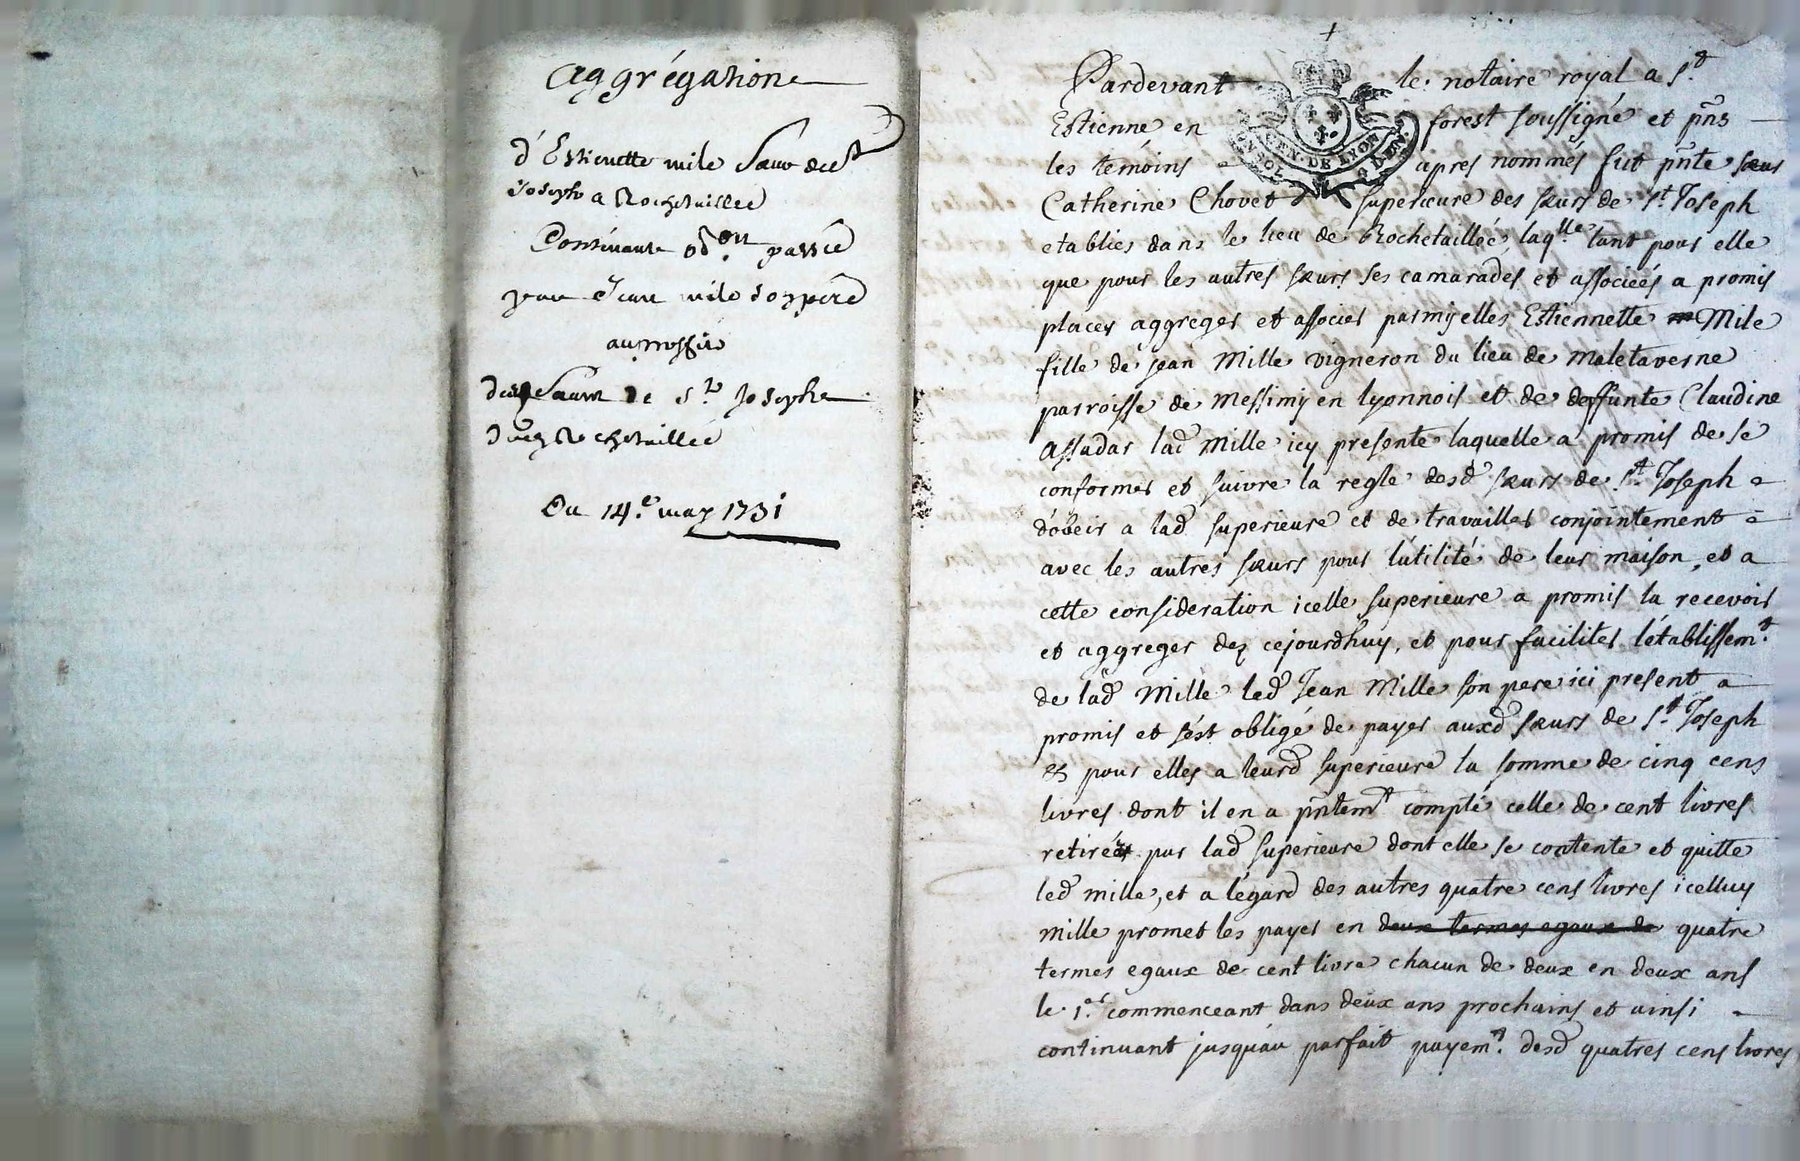 Aggrégation
d'Estienette mile Sœur de St
Joseph a Rochetaillée
Contenante od.on passée
par Jean mile son père
au proffit
des Sœurs de St. Joseph
dud Rochetaillée
Du 14.e may 1731
Pardevant le notaire royal a St.
Estienne en forest soussigné et pñs
les temoins apres nommés fut pñte sœur
Catherine Chovet superieure des sœurs de St. Joseph
etablies dans le lieu de Rochetaillée, laqlle. tant pour elle
que pour les autres sœurs ses camarades et associées a promis
placer aggreger et associer parmy elles Estiennette Mile
fille de jean Mille vigneron du lieu de maletaverne
parroisse de messimy en lyonnois et de deffunte Claudine
Assadas lad Mille icy presente laquelle a promis de se
conformer et suivre la regle desd sœurs de St. Joseph
d'obeir a lad superieure et de travailler conjointement
avec les autres sœurs pour l'utilité de leur maison, et a
cette consideration icelle superieure a promis la recevoir
et aggreger dez cejourdhuy, et pour faciliter l'établissemt.
de lad Mille led Jean Mille son pere ici present a
promis et s'est obligé de payer auxd sœurs de St. Joseph
et pour elles a leurd superieure la somme de cinq cens
livres dont il en a pñtemt compté celle de cent livres
retirée par lad superieure dont elle se contente et quitte
led mille, et a l'égard des autres quatre cens livres icelluy
mille promet les payer en deux termes egaux de quatre
termes egaux de cent livre chacun de deux en deux ans
le 1.er commenceant dans deux ans prochains et ainsi
continuant jusquau parfait payemt. desd quatres cens livres